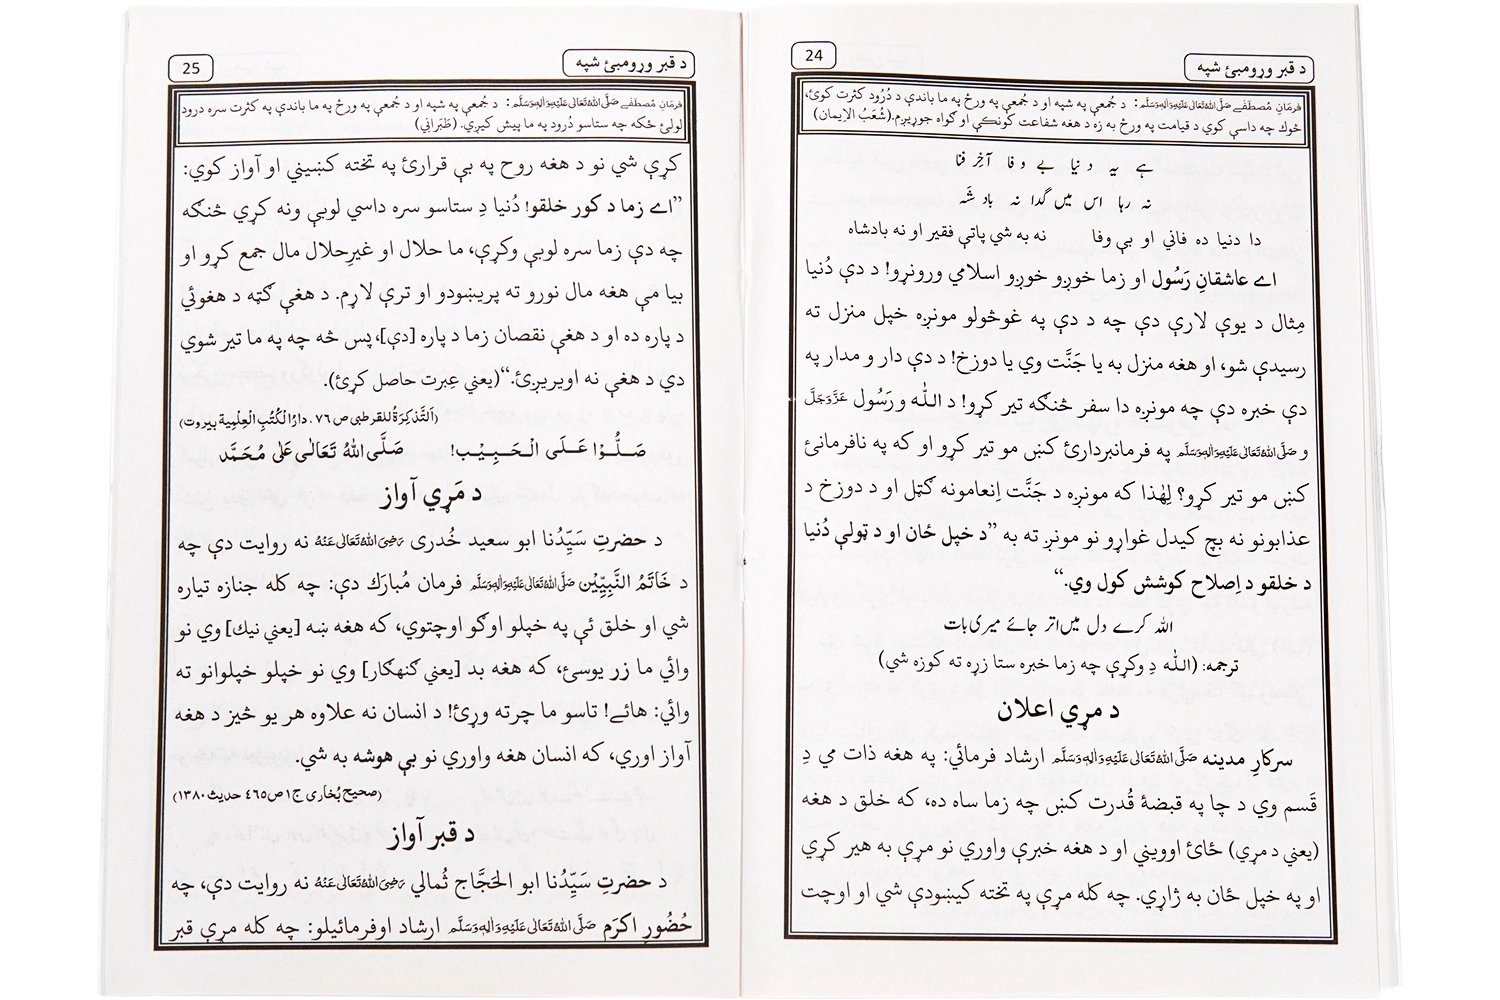 د قبر وړومبئ شپه
24
فرمَانِ مُصطَفٰے صَلَّى اللهُ تَعَالٰى عَلَيْهِ وَاٰلِهٖ وَسَلَّم: د جُمعې په شپه او د جُمعې په ورځ په ما باندې د دُرُود کثرت کوئ،
څوك چه داسې کوي د قيامت په ورځ به زه د هغه شفاعت کونکې او ګواه جوړيږم.(شُعَبُ الايمان)
ہے یہ دنیا بے وفا آخِر فنا
نہ رہا اس میں گدا نہ بادشَہ
دا دنيا ده فاني او بې وفا نه به شي پاتې فقير او نه بادشاه
اے عاشقانِ رَسُول او زما خوږو خوږو اسلامي ورونړو! د دې دُنيا
مِثال د يوې لارې دې چه د دې په غوڅولو مونږه خپل منزل ته
رسيدې شو، او هغه منزل به يا جَنَّت وي يا دوزخ! د دې دار و مدار په
دې خبره دې چه مونږه دا سفر څنګه تير کړو! د اللّٰه و رَسُول عَزَّوَجَلَّ
و صَلَّى اللهُ تَعَالٰى عَلَيْهِ وَاٰلِهٖ وَسَلَّم په فرمانبردارئ کښ مو تير کړو او که په نافرمانئ
کښ مو تير کړو؟ لِهٰذا که مونږه د جَنَّت اِنعامونه ګټل او د دوزخ د
عذابونو نه بچ کيدل غواړو نو مونږ ته به ”د خپل ځان او د ټولې دُنيا
د خلقو د اِصلاح کوشش کول وي.“
اللہ کرے دل میں اتر جائے میری بات
ترجمه: (اللّٰه دِ وکړې چه زما خبره ستا زړه ته کوزه شي)
د مړي اعلان
سرکارِ مدينه صَلَّى اللهُ تَعَالٰى عَلَيْهِ وَاٰلِهٖ وَسَلَّم ارشاد فرمائي: په هغه ذات مې دِ
قَسم وي د چا په قبضۀ قُدرت کښ چه زما ساه ده، که خلق د هغه
(يعني د مړي) ځائ اوويني او د هغه خبرې واوري نو مړې به هير کړي
او په خپل ځان به ژاړي. چه کله مړې په تخته کيښودې شي او اوچت
د قبر وړومبئ شپه
25
فرمَانِ مُصطَفٰے صَلَّى اللهُ تَعَالٰى عَلَيْهِ وَاٰلِهٖ وَسَلَّم: د جُمعې په شپه او د جُمعې په ورځ په ما باندې په کثرت سره درود
لولئ ځکه چه ستاسو دُرود په ما پيش کيږي. (طَبَرانِي)
کړې شي نو د هغه روح په بې قرارئ په تخته کښيني او آواز کوي:
”اے زما د کور خلقو! دُنيا دِ ستاسو سره داسې لوبې ونه کړي څنګه
چه دې زما سره لوبې وکړې، ما حلال او غيرِحلال مال جمع کړو او
بيا مې هغه مال نورو ته پريښودو او ترې لاړم. د هغې ګټه د هغوئي
د پاره ده او د هغې نقصان زما د پاره [دې]،پس څه چه په ما تير شوي
دي د هغې نه اويريږئ.“(يعني عِبرت حاصل کړئ).
(اَلتَّذكِرَةُ للقرطبى ص ٧٦، دارُ الْكُتُب الْعِلْمِية بيروت)
صَلُّوْا عَلَى الْحَبِيْب! صَلَّى اللهُ تَعَالٰى عَلٰى مُحَمَّد
د مَړي آواز
د حضرتِ سَيِّدُنا ابو سعيد خُدرى رَضِىَ اللهُ تَعَالٰى عَنْهُ نه روايت دې چه
د خَاتَمُ النَّبِيّيْن صَلَّى اللهُ تَعَالٰى عَلَيْهِ وَاٰلِهٖ وَسَلَّم فرمان مُبارَك دې: چه کله جنازه تياره
شي او خلق ئې په خپلو اوګو اوچتوي، که هغه ښه [يعني نيك] وي نو
وائي ما زر يوسئ، که هغه بد [يعني ګنهګار] وي نو خپلو خپلوانو ته
وائي: هائے! تاسو ما چرته وړئ! د انسان نه علاوه هر يو څيز د هغه
آواز اوري، که انسان هغه واوري نو بې هوشه به شي.
(صحيح بُخارى ج ١ ص ٤٦٥ حديث ١٣٨٠)
د قبر آواز
د حضرتِ سَيِّدُنا ابو الحَجَّاج ثُمالي رَضِىَ اللهُ تَعَالٰى عَنْهُ نه روايت دې، چه
حُضُورِ اکرَم صَلَّى اللهُ تَعَالٰى عَلَيْهِ وَاٰلِهٖ وَسَلَّم ارشاد اوفرمائيلو: چه کله مړې قبر